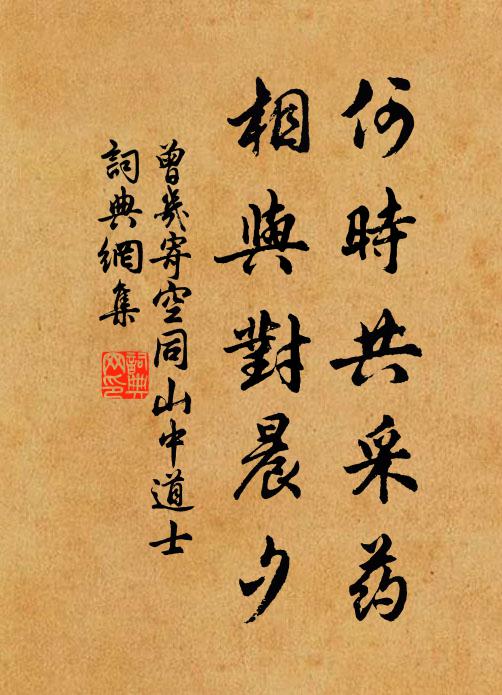 何時共采药
相與對晨夕
曾幾寄空同山中道士
詞典網集
詞典网印